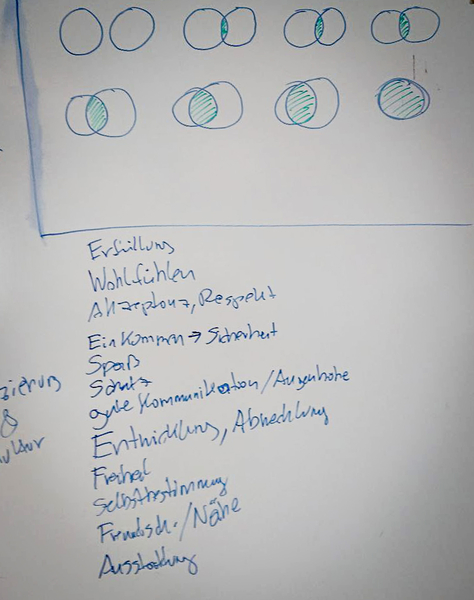 Erfüllung
Wohlfühlen
Akzeptanz, Respekt
Einkommen → Sicherheit
Spaß
Schutz
gute Kommunikation / Augenhöhe
Entwicklung, Abwechlung
Freiheit
Selbstbestimmung
Freundsch. / Nähe
Ausstattung
zierung
&